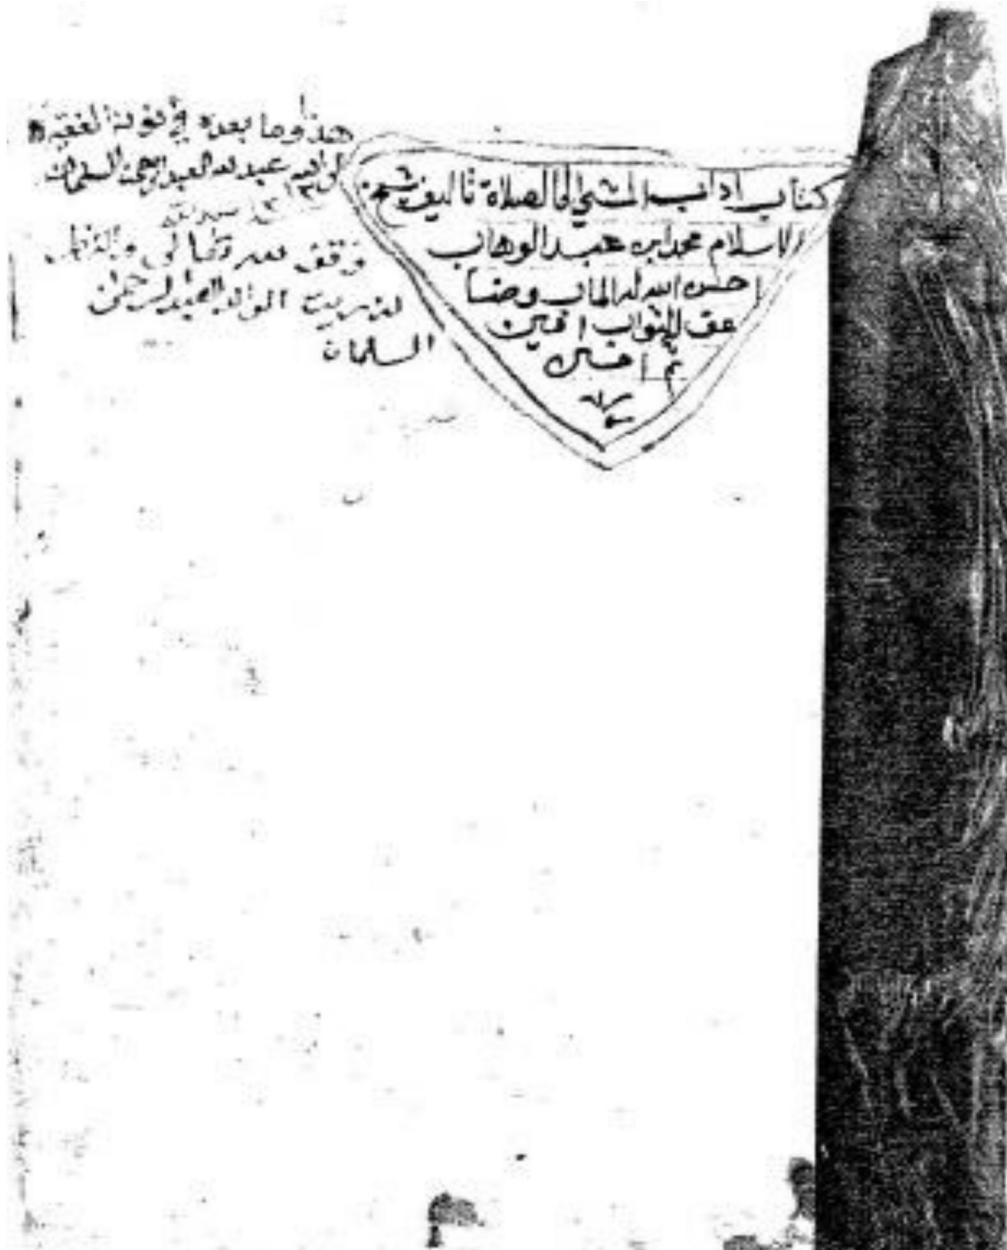 كتاب اداب المشي الى الصلاة تاليف شيخ
الاسلام محمد ابن عبد الوهاب
احسن الله له المآب وضا
عف له الثواب امين
تم امين
هذا وما بعده في نوبة الفقير
الى الله عبد الله العبد الرحمن السلمان
وقف لله تعالى
لذريت الوالد العبد الرحمن
السلمان